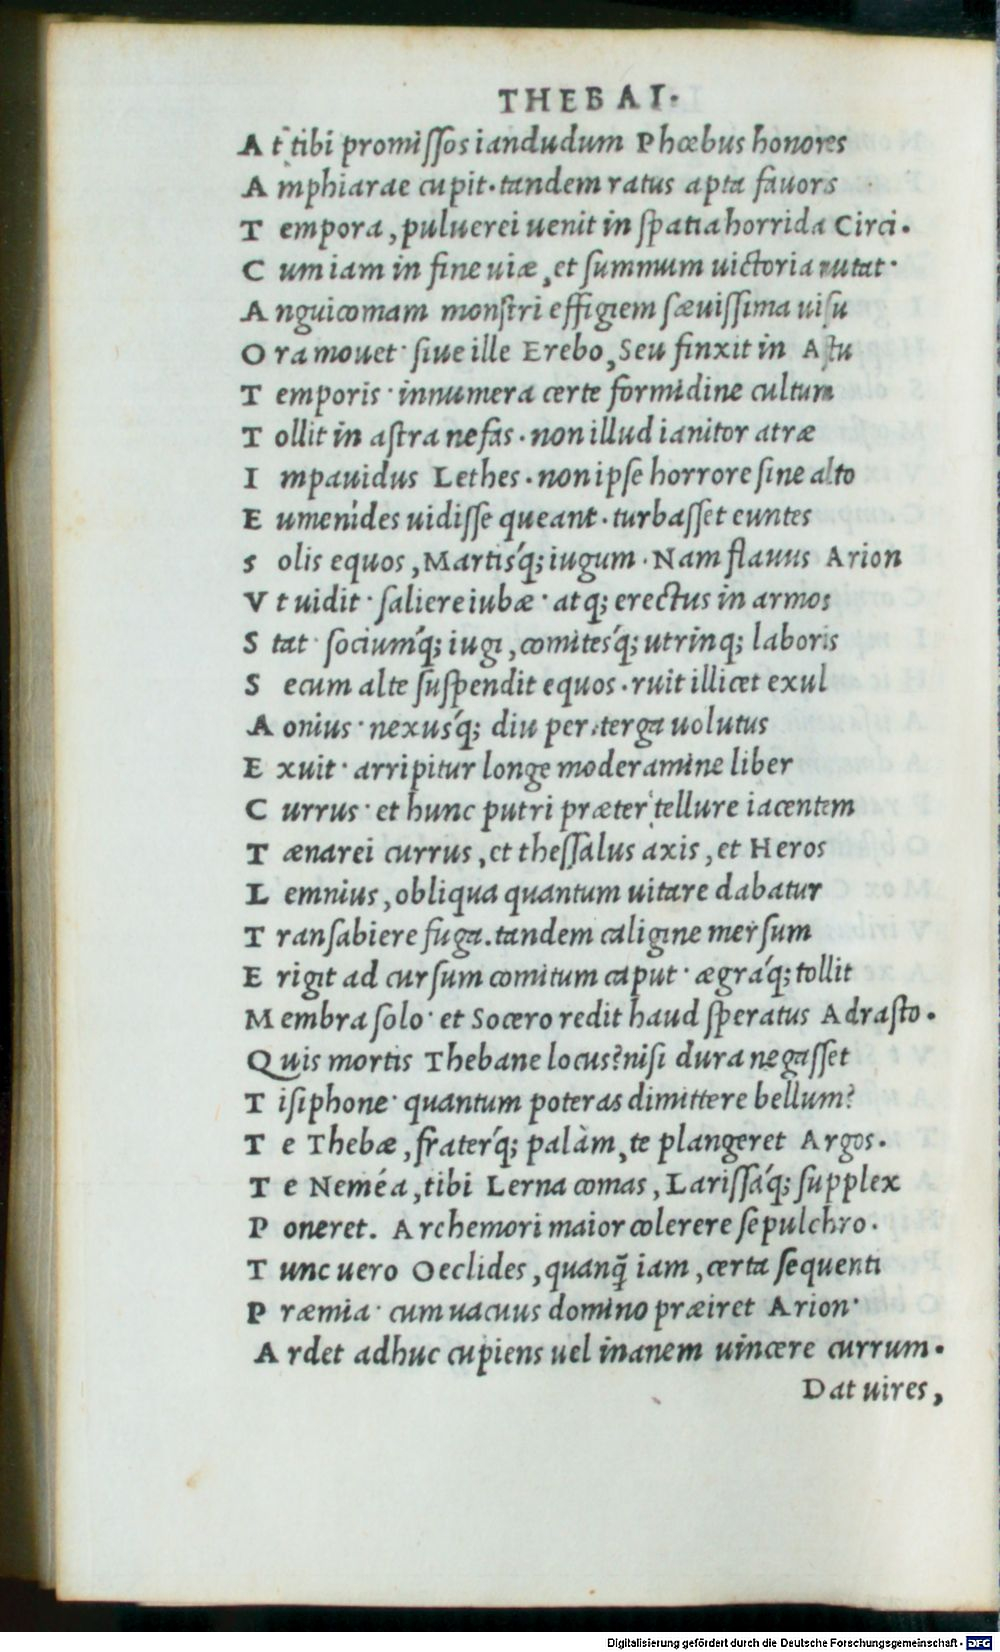 THEBAI.
A t tibi promissos iandudum Phœbus honores
A mphiarae cupit. tandem ratus apta fauors
T empora, puluerei uenit in spatia horrida Circi.
C um iam in fine uiæ, et summum uictoria nutat.
A nguicomam monstri effigiem sæuissima uisu
O ra mouet. siue ille Erebo, Seu finxit in Astu
T emporis. innumera certe formidine cultum
T ollit in astra nefas. non illud ianitor atræ
I mpauidus Lethes. non ipse horrore sine alto
E umenides uidisse queant. turbasset euntes
S olis equos, Martisq́; iugum. Nam flauus Arion
V t uidit. saliere iubæ. atq; erectus in armos
S tat. sociumq́; iugi, comitesq́; utrinq; laboris
S ecum alte suspendit equos. ruit illicet exul
A onius. nexusq́; diu per terga uolutus
E xuit. arripitur longe moderamine liber
C urrus. et hunc putri præter tellure iacentem
T ænarei currus, et thessalus axis, et Heros
L emnius, obliqua quantum uitare dabatur
T ransabiere fuga. tandem caligine mersum
E rigit ad cursum comitum caput. ægraq́; tollit
M embra solo. et Socero redit haud speratus Adrasto.
Q uis mortis Thebane locus? nisi dura negasset
T isiphone. quantum poteras dimittere bellum?
T e Thebæ, fraterq́; palàm, te plangeret Argos.
T e Neméa, tibi Lerna comas, Larissaq́; supplex
P oneret. Archemori maior colerere sepulchro.
T unc uero Oeclides, quanq̃ iam, certa sequenti
P ræmia. cum uacuus domino præiret Arion.
A rdet adhuc cupiens uel inanem uincere currum.
Dat uires,
Digitalisierung gefördert durch die Deutsche Forschungsgemeinschaft - DFG